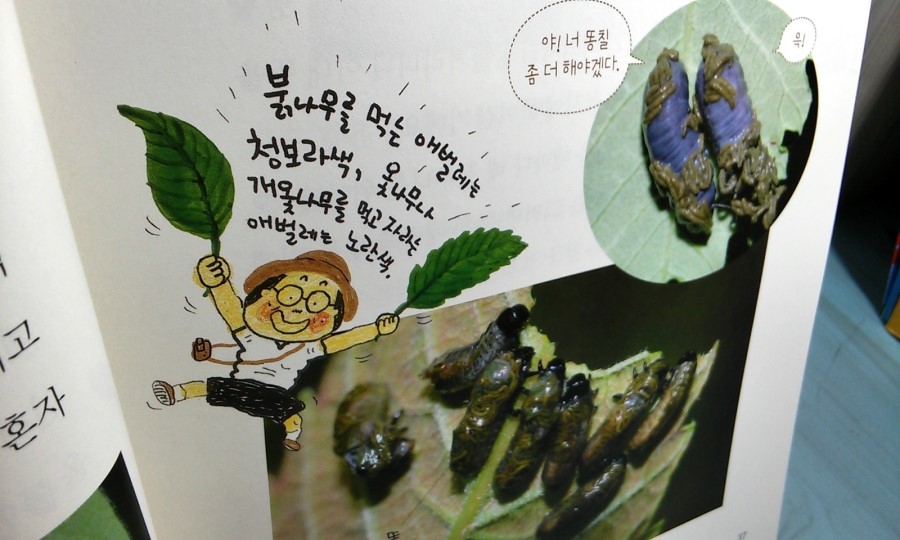 야! 너 똥칠
좀 더 해야겠다.
윽!
붉나무를 먹는 애벌레는
청보라색, 옻나무나
개옻나무를 먹고 자라는
애벌레는 노란색.
고
혼자
똥